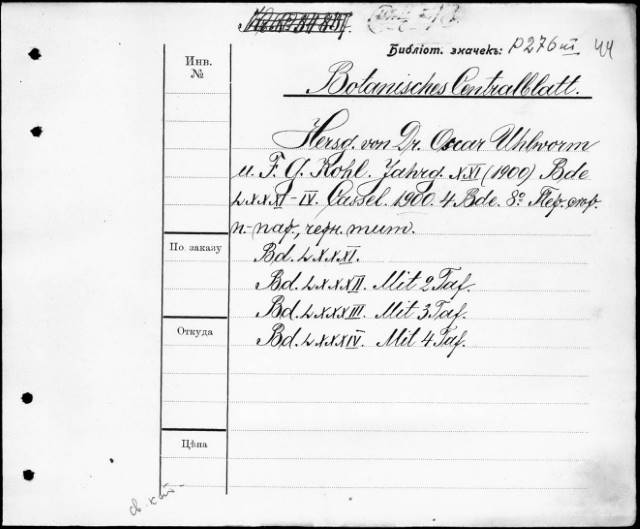 Библіот. значекъ: P276III 44
Инв.
№
Botanisches Centralblatt.
Hersg. von Dr. Oscar Uhlworm
u. F. G. Kohl. Jahrg. XXI (1900) Bde
LXXXI–IV. Cassel. 1900. 4 Bde. 8º. Пер. скор.
п-пар, черн. тит.
По заказу
Bd. LXXXI.
Bd. LXXXII. Mit 2 Taf.
Bd. LXXXIII. Mit 3 Taf.
Откуда
Bd. LXXXIV. Mit 4 Taf.
Цѣна
св. кат.